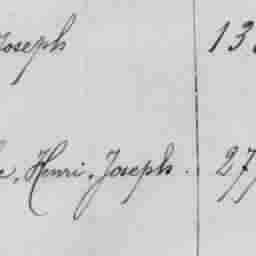 Joseph 13
e, Henri, Joseph. 277